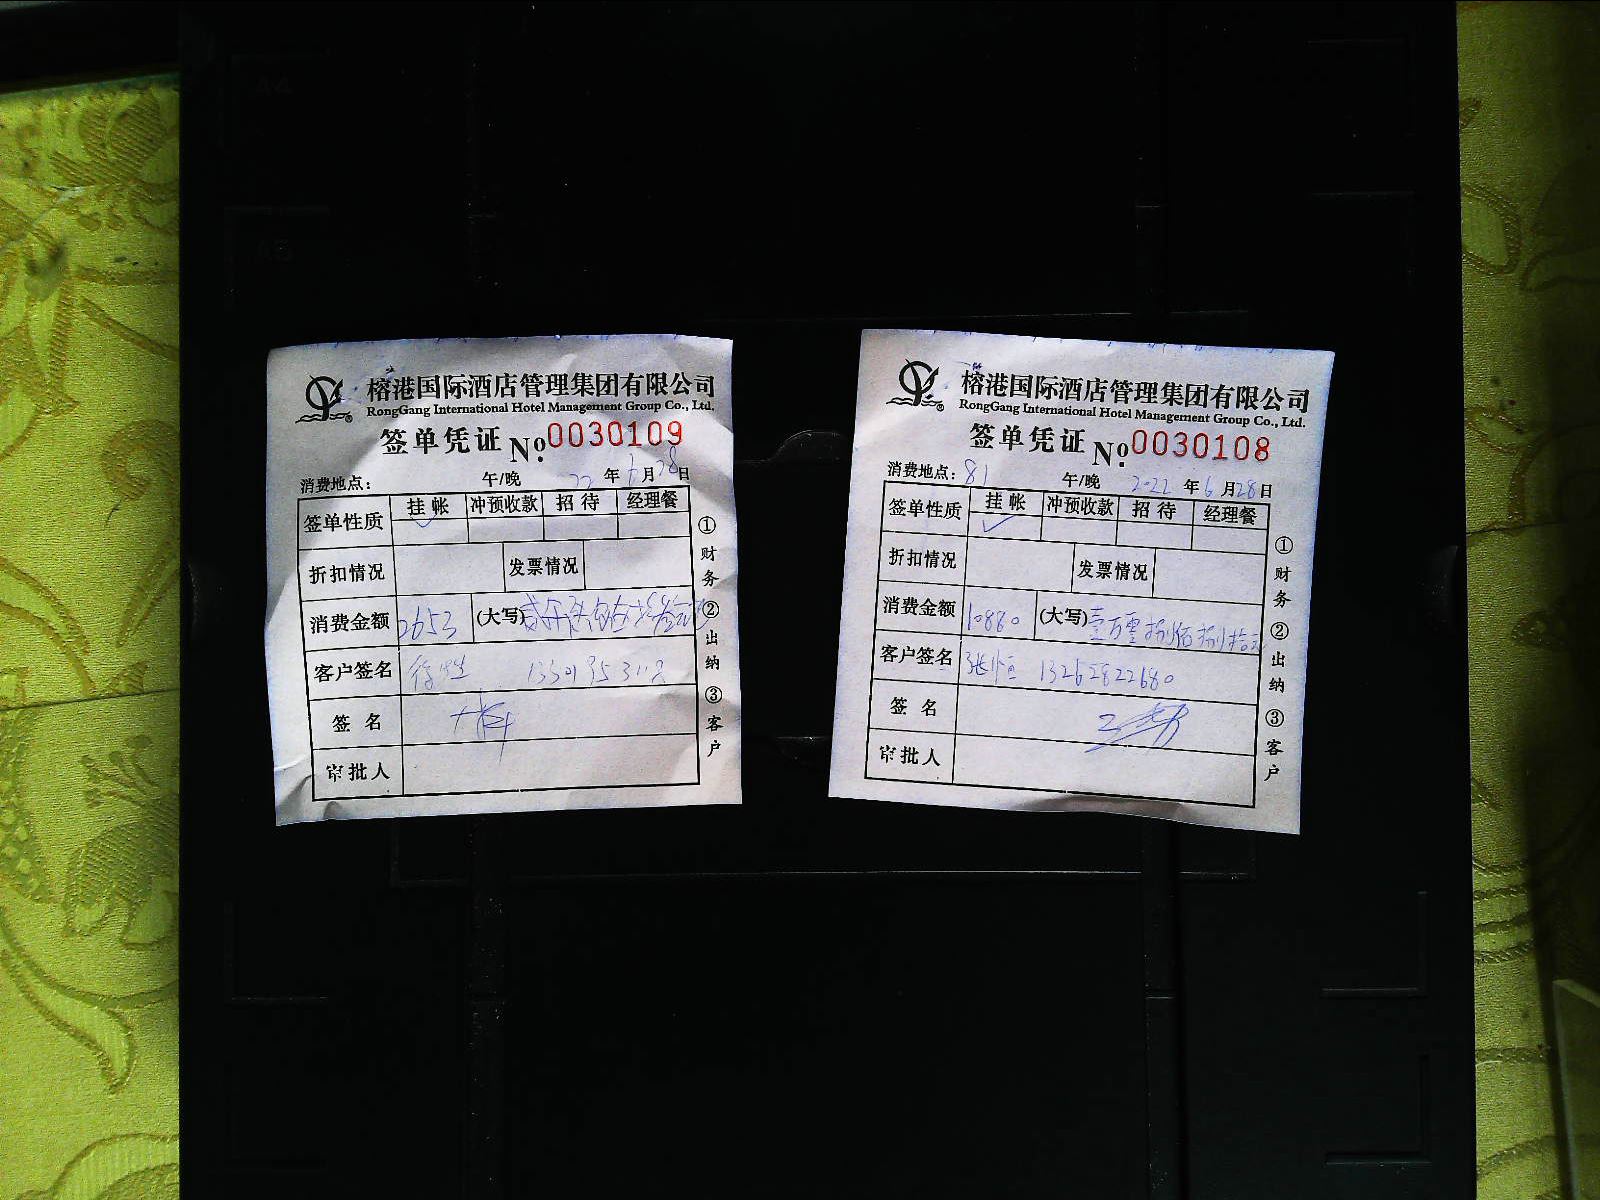 榕港国际酒店管理集团有限公司
RongGang International Hotel Management Group Co., Ltd.
签单凭证 No. 0030109
消费地点： 午/晚 22 年 6 月 28 日
签单性质 挂帐 冲预收款 招待 经理餐
折扣情况 发票情况
消费金额 2653 (大写)
客户签名
签名
审批人
①财务 ②出纳 ③客户
榕港国际酒店管理集团有限公司
RongGang International Hotel Management Group Co., Ltd.
签单凭证 No. 0030108
消费地点：81 午/晚 2022 年 6 月 28 日
签单性质 挂帐 冲预收款 招待 经理餐
折扣情况 发票情况
消费金额 10880 (大写)壹万零捌佰捌拾元
客户签名 张恒 13262822680
签名
审批人
①财务 ②出纳 ③客户